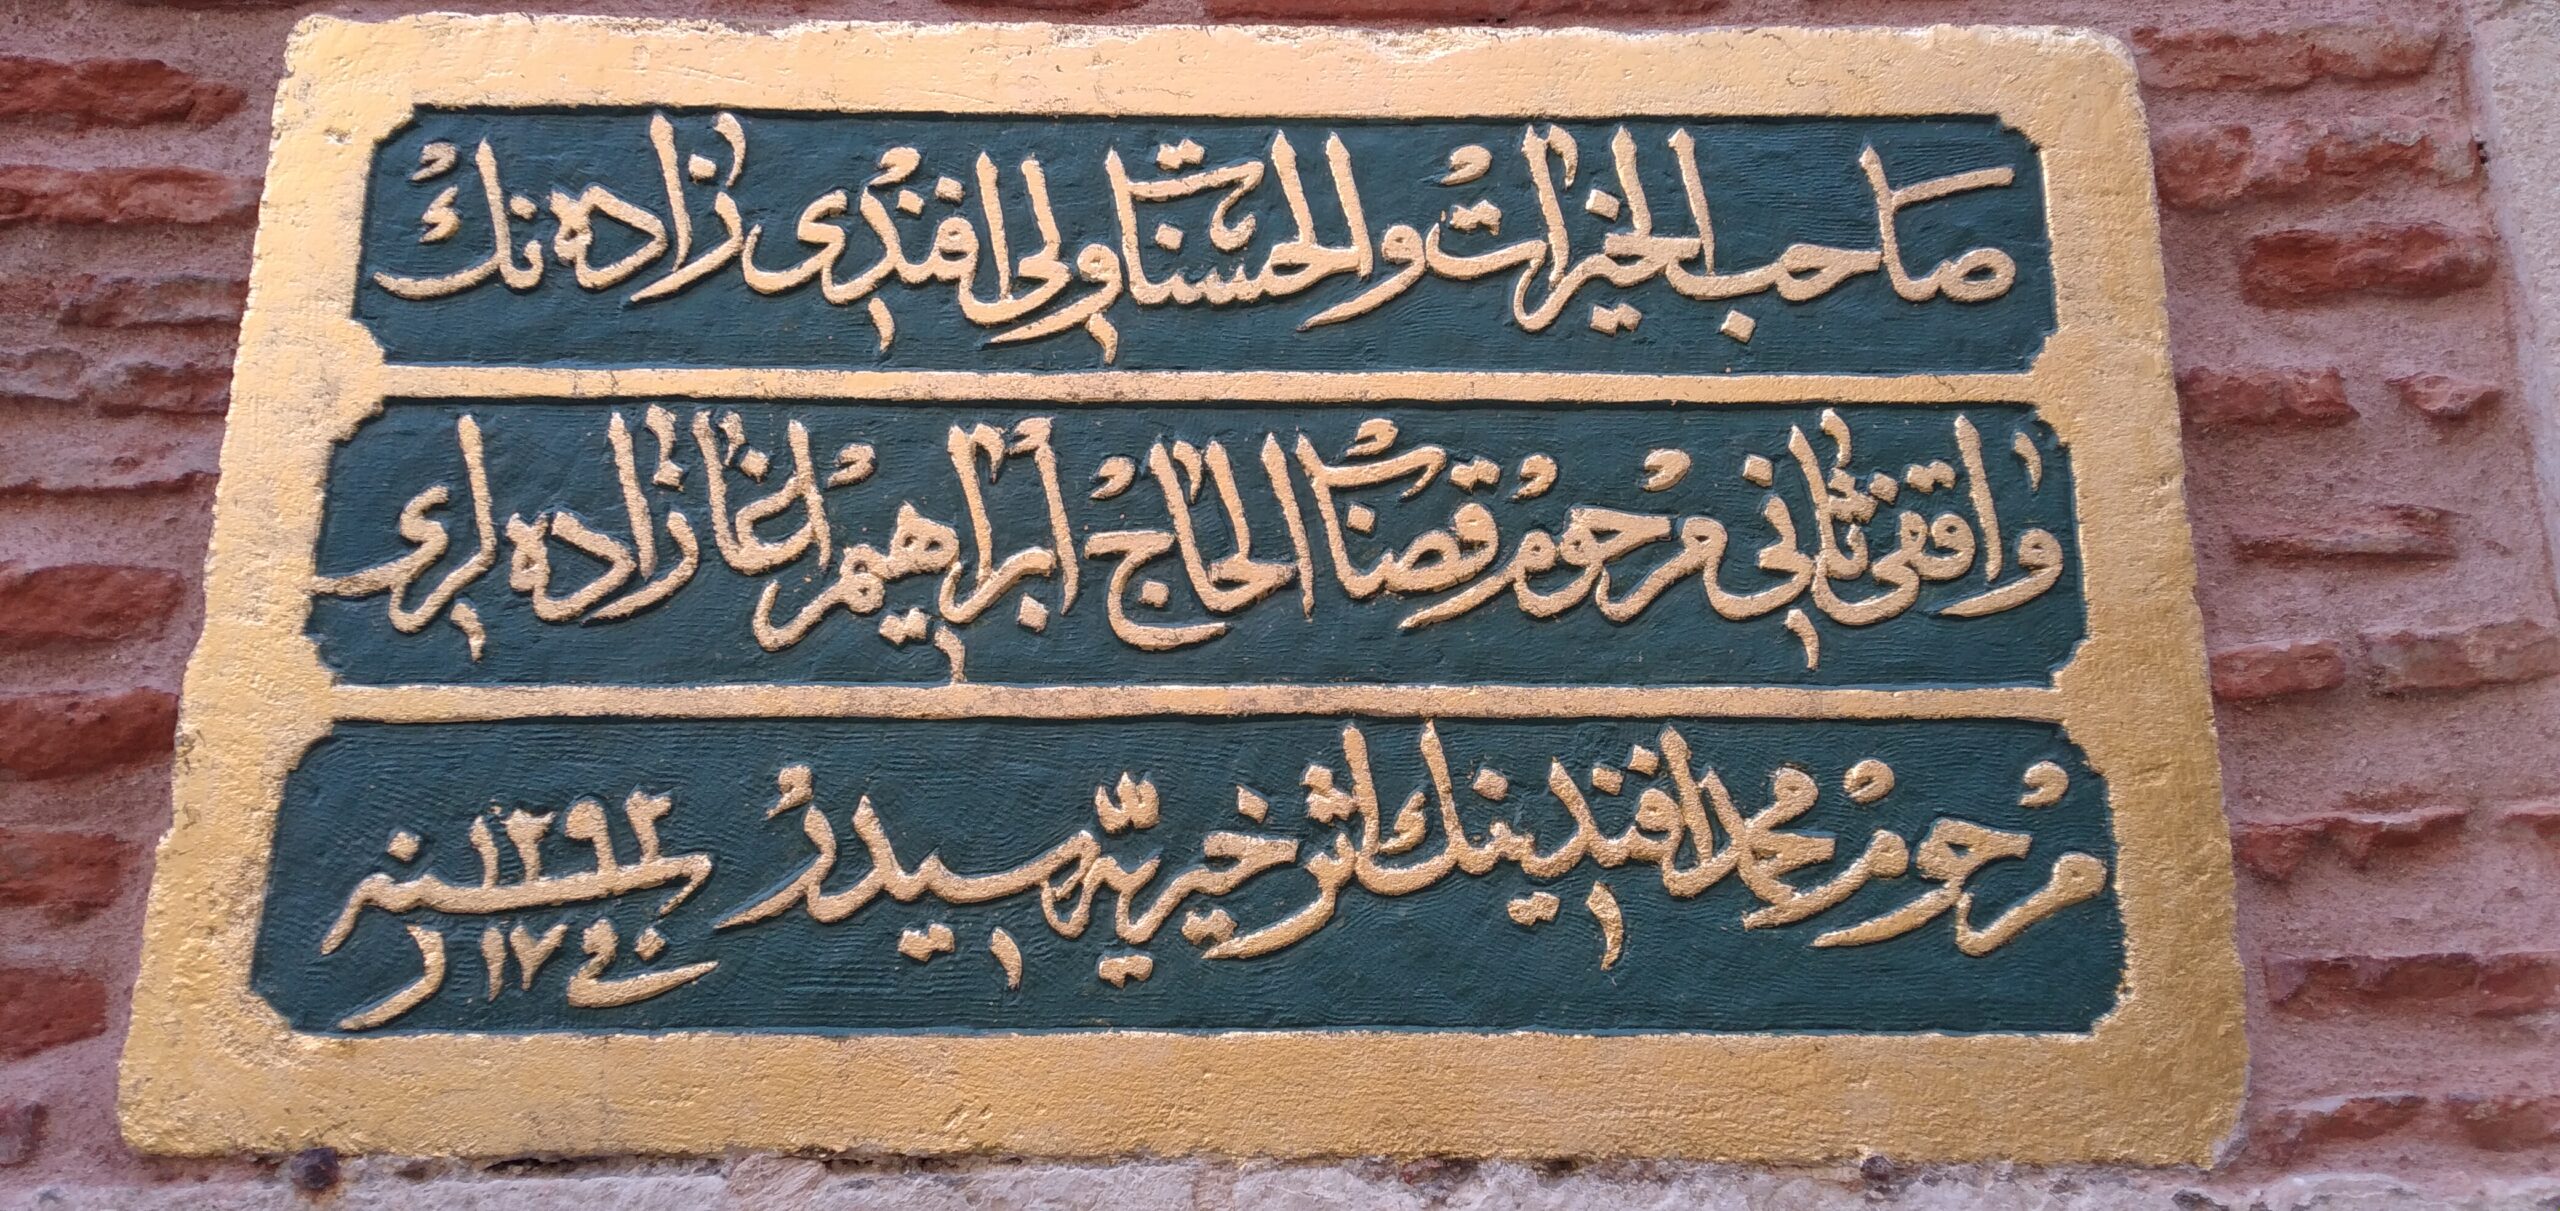 صاحب الخيرات والحسنات ولى افندى زاده نك
واقف ثانى مرحوم قصاب الحاج ابراهيم اغا زاده لرى
مرحوم محمد افندينك اثر خيريه سيدر سنه ١٢٩٢
١٧